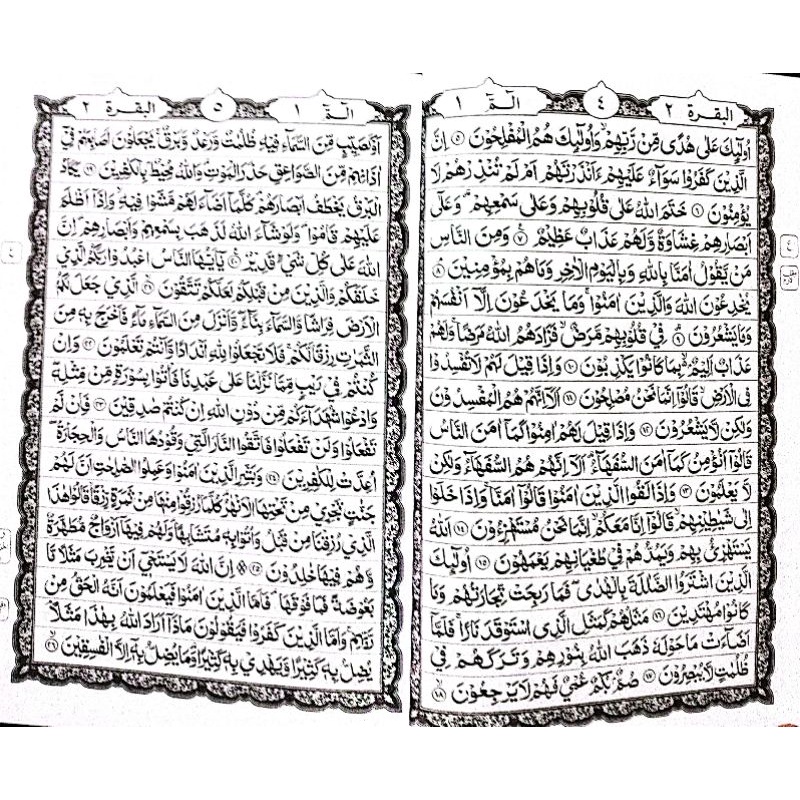 البقرة ٢ ٤ الٓمّٓ ١
اُولٰٓئِكَ عَلٰى هُدًى مِّنْ رَّبِّهِمْ وَاُولٰٓئِكَ هُمُ الْمُفْلِحُوْنَ ٥ اِنَّ
الَّذِيْنَ كَفَرُوْا سَوَآءٌ عَلَيْهِمْ ءَاَنْذَرْتَهُمْ اَمْ لَمْ تُنْذِرْهُمْ لَا
يُؤْمِنُوْنَ ٦ خَتَمَ اللّٰهُ عَلٰى قُلُوْبِهِمْ وَعَلٰى سَمْعِهِمْ ؕ وَعَلٰٓى
اَبْصَارِهِمْ غِشَاوَةٌ وَّلَهُمْ عَذَابٌ عَظِيْمٌ ٧ وَمِنَ النَّاسِ
مَنْ يَّقُوْلُ اٰمَنَّا بِاللّٰهِ وَبِالْيَوْمِ الْاٰخِرِ وَمَا هُمْ بِمُؤْمِنِيْنَ ٨
يُخٰدِعُوْنَ اللّٰهَ وَالَّذِيْنَ اٰمَنُوْا ۚ وَمَا يَخْدَعُوْنَ اِلَّآ اَنْفُسَهُمْ
وَمَا يَشْعُرُوْنَ ٩ فِيْ قُلُوْبِهِمْ مَّرَضٌ ۙ فَزَادَهُمُ اللّٰهُ مَرَضًا ۚ وَلَهُمْ
عَذَابٌ اَلِيْمٌۢ ۙ بِمَا كَانُوْا يَكْذِبُوْنَ ١٠ وَاِذَا قِيْلَ لَهُمْ لَا تُفْسِدُوْا
فِى الْاَرْضِ ۙ قَالُوْٓا اِنَّمَا نَحْنُ مُصْلِحُوْنَ ١١ اَلَآ اِنَّهُمْ هُمُ الْمُفْسِدُوْنَ
وَلٰكِنْ لَّا يَشْعُرُوْنَ ١٢ وَاِذَا قِيْلَ لَهُمْ اٰمِنُوْا كَمَآ اٰمَنَ النَّاسُ
قَالُوْٓا اَنُؤْمِنُ كَمَآ اٰمَنَ السُّفَهَآءُ ؕ اَلَآ اِنَّهُمْ هُمُ السُّفَهَآءُ وَلٰكِنْ
لَّا يَعْلَمُوْنَ ١٣ وَاِذَا لَقُوا الَّذِيْنَ اٰمَنُوْا قَالُوْٓا اٰمَنَّا ۖ وَاِذَا خَلَوْا
اِلٰى شَيٰطِيْنِهِمْ ۙ قَالُوْٓا اِنَّا مَعَكُمْ ۙ اِنَّمَا نَحْنُ مُسْتَهْزِءُوْنَ ١٤ اَللّٰهُ
يَسْتَهْزِئُ بِهِمْ وَيَمُدُّهُمْ فِيْ طُغْيَانِهِمْ يَعْمَهُوْنَ ١٥ اُولٰٓئِكَ
الَّذِيْنَ اشْتَرَوُا الضَّلٰلَةَ بِالْهُدٰى ۪ فَمَا رَبِحَتْ تِّجَارَتُهُمْ وَمَا
كَانُوْا مُهْتَدِيْنَ ١٦ مَثَلُهُمْ كَمَثَلِ الَّذِى اسْتَوْقَدَ نَارًا ۚ فَلَمَّآ
اَضَآءَتْ مَا حَوْلَهٗ ذَهَبَ اللّٰهُ بِنُوْرِهِمْ وَتَرَكَهُمْ فِيْ
ظُلُمٰتٍ لَّا يُبْصِرُوْنَ ١٧ صُمٌّۢ بُكْمٌ عُمْيٌ فَهُمْ لَا يَرْجِعُوْنَ ١٨
البقرة ٢ ٥ الٓمّٓ ١
اَوْ كَصَيِّبٍ مِّنَ السَّمَآءِ فِيْهِ ظُلُمٰتٌ وَّرَعْدٌ وَّبَرْقٌ ۚ يَجْعَلُوْنَ اَصَابِعَهُمْ فِيْٓ
اٰذَانِهِمْ مِّنَ الصَّوَاعِقِ حَذَرَ الْمَوْتِ ؕ وَاللّٰهُ مُحِيْطٌۢ بِالْكٰفِرِيْنَ ١٩ يَكَادُ
الْبَرْقُ يَخْطَفُ اَبْصَارَهُمْ ؕ كُلَّمَآ اَضَآءَ لَهُمْ مَّشَوْا فِيْهِ ۙ وَاِذَآ اَظْلَمَ
عَلَيْهِمْ قَامُوْا ؕ وَلَوْ شَآءَ اللّٰهُ لَذَهَبَ بِسَمْعِهِمْ وَاَبْصَارِهِمْ ؕ اِنَّ
اللّٰهَ عَلٰى كُلِّ شَيْءٍ قَدِيْرٌ ٢٠ يٰٓاَيُّهَا النَّاسُ اعْبُدُوْا رَبَّكُمُ الَّذِيْ
خَلَقَكُمْ وَالَّذِيْنَ مِنْ قَبْلِكُمْ لَعَلَّكُمْ تَتَّقُوْنَ ٢١ الَّذِيْ جَعَلَ لَكُمُ
الْاَرْضَ فِرَاشًا وَّالسَّمَآءَ بِنَآءً ۪ وَّاَنْزَلَ مِنَ السَّمَآءِ مَآءً فَاَخْرَجَ بِهٖ مِنَ
الثَّمَرٰتِ رِزْقًا لَّكُمْ ۚ فَلَا تَجْعَلُوْا لِلّٰهِ اَنْدَادًا وَّاَنْتُمْ تَعْلَمُوْنَ ٢٢ وَاِنْ
كُنْتُمْ فِيْ رَيْبٍ مِّمَّا نَزَّلْنَا عَلٰى عَبْدِنَا فَاْتُوْا بِسُوْرَةٍ مِّنْ مِّثْلِهٖ
وَادْعُوْا شُهَدَآءَكُمْ مِّنْ دُوْنِ اللّٰهِ اِنْ كُنْتُمْ صٰدِقِيْنَ ٢٣ فَاِنْ لَّمْ
تَفْعَلُوْا وَلَنْ تَفْعَلُوْا فَاتَّقُوا النَّارَ الَّتِيْ وَقُوْدُهَا النَّاسُ وَالْحِجَارَةُ ۖ
اُعِدَّتْ لِلْكٰفِرِيْنَ ٢٤ وَبَشِّرِ الَّذِيْنَ اٰمَنُوْا وَعَمِلُوا الصّٰلِحٰتِ اَنَّ لَهُمْ
جَنّٰتٍ تَجْرِيْ مِنْ تَحْتِهَا الْاَنْهٰرُ ؕ كُلَّمَا رُزِقُوْا مِنْهَا مِنْ ثَمَرَةٍ رِّزْقًا ۙ قَالُوْا هٰذَا
الَّذِيْ رُزِقْنَا مِنْ قَبْلُ ۙ وَاُتُوْا بِهٖ مُتَشَابِهًا ؕ وَلَهُمْ فِيْهَآ اَزْوَاجٌ مُّطَهَّرَةٌ
وَّهُمْ فِيْهَا خٰلِدُوْنَ ٢٥ اِنَّ اللّٰهَ لَا يَسْتَحْيٖٓ اَنْ يَّضْرِبَ مَثَلًا مَّا
بَعُوْضَةً فَمَا فَوْقَهَا ؕ فَاَمَّا الَّذِيْنَ اٰمَنُوْا فَيَعْلَمُوْنَ اَنَّهُ الْحَقُّ مِنْ
رَّبِّهِمْ ۚ وَاَمَّا الَّذِيْنَ كَفَرُوْا فَيَقُوْلُوْنَ مَاذَآ اَرَادَ اللّٰهُ بِهٰذَا مَثَلًا ۘ
يُضِلُّ بِهٖ كَثِيْرًا وَّيَهْدِيْ بِهٖ كَثِيْرًا ؕ وَمَا يُضِلُّ بِهٖٓ اِلَّا الْفٰسِقِيْنَ ٢٦